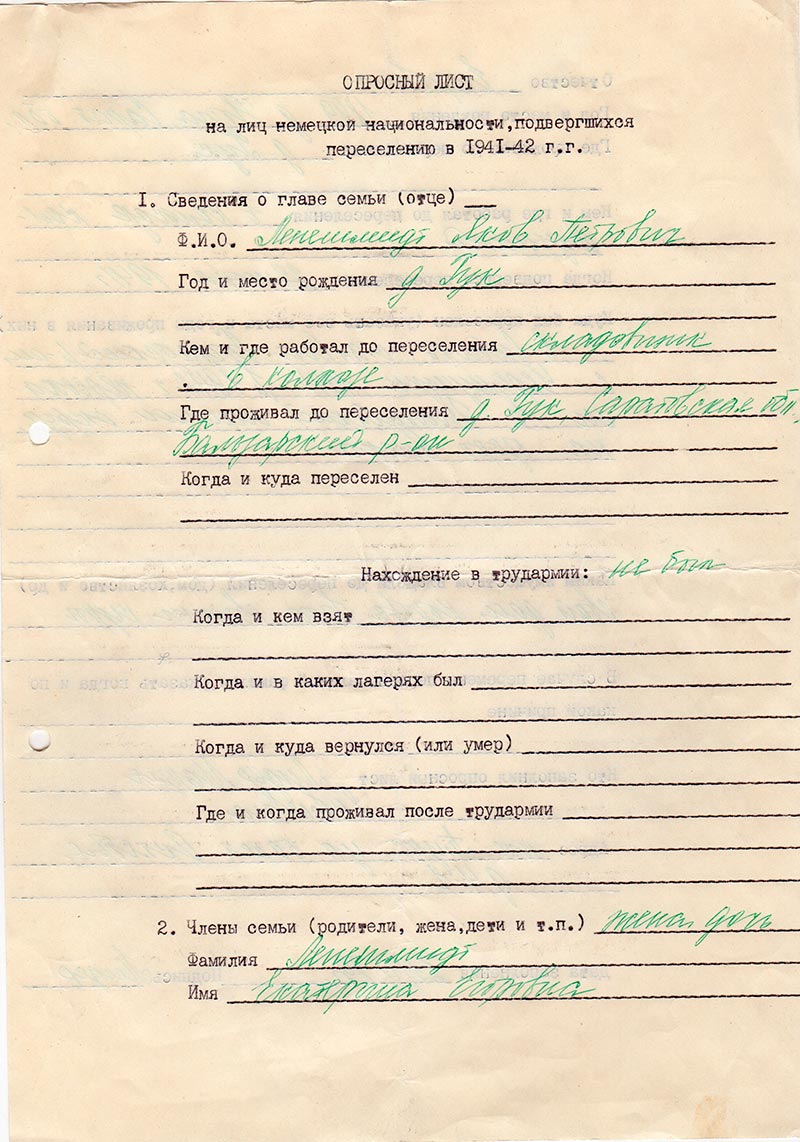 ОПРОСНЫЙ ЛИСТ
на лиц немецкой национальности, подвергшихся
переселению в 1941-42 г.г.
1. Сведения о главе семьи (отце)
Ф.И.О. Яков Петрович
Год и место рождения д. Гук
Кем и где работал до переселения складовщик
. в колхозе
Где проживал до переселения д. Гук, Саратовская обл,
р-он
Когда и куда переселен
Нахождение в трудармии: не был
Когда и кем взят
Когда и в каких лагерях был
Когда и куда вернулся (или умер)
Где и когда проживал после трудармии
2. Члены семьи (родители, жена, дети и т.п.) жена дочь
Фамилия
Имя Екатерина